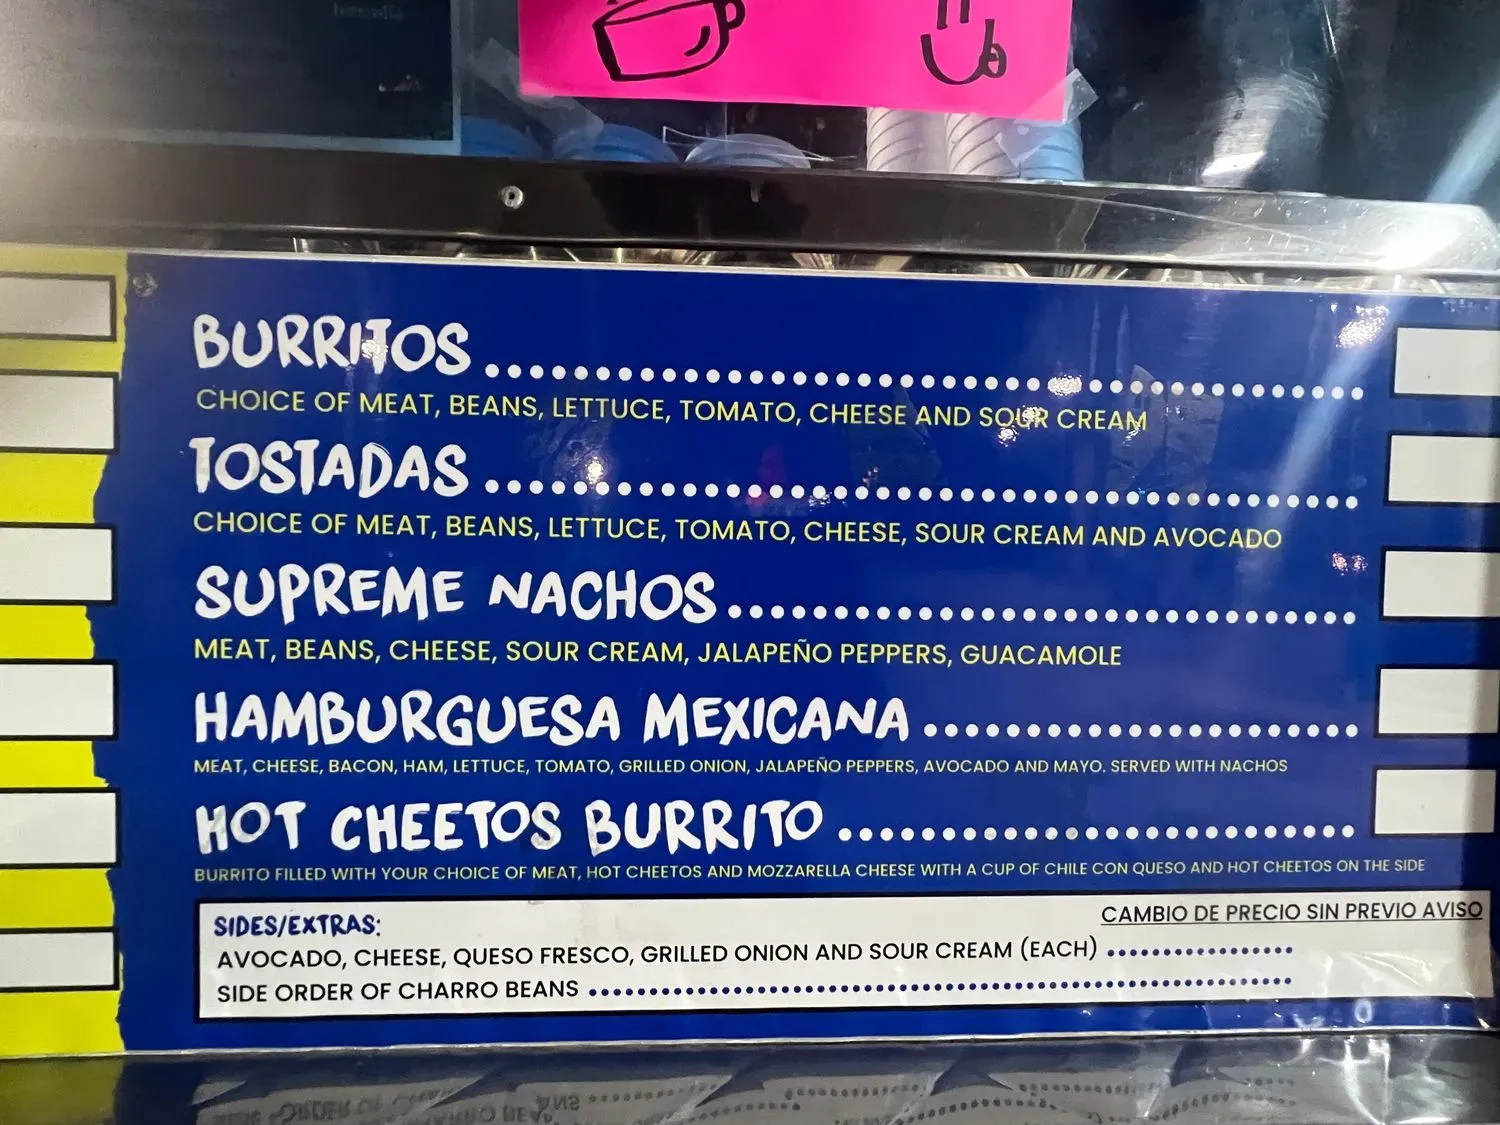 BURRITOS
CHOICE OF MEAT, BEANS, LETTUCE, TOMATO, CHEESE AND SOUR CREAM
TOSTADAS
CHOICE OF MEAT, BEANS, LETTUCE, TOMATO, CHEESE, SOUR CREAM AND AVOCADO
SUPREME NACHOS
MEAT, BEANS, CHEESE, SOUR CREAM, JALAPEÑO PEPPERS, GUACAMOLE
HAMBURGUESA MEXICANA
MEAT, CHEESE, BACON, HAM, LETTUCE, TOMATO, GRILLED ONION, JALAPEÑO PEPPERS, AVOCADO AND MAYO. SERVED WITH NACHOS
HOT CHEETOS BURRITO
BURRITO FILLED WITH YOUR CHOICE OF MEAT, HOT CHEETOS AND MOZZARELLA CHEESE WITH A CUP OF CHILE CON QUESO AND HOT CHEETOS ON THE SIDE
SIDES/EXTRAS:
CAMBIO DE PRECIO SIN PREVIO AVISO
AVOCADO, CHEESE, QUESO FRESCO, GRILLED ONION AND SOUR CREAM (EACH)
SIDE ORDER OF CHARRO BEANS